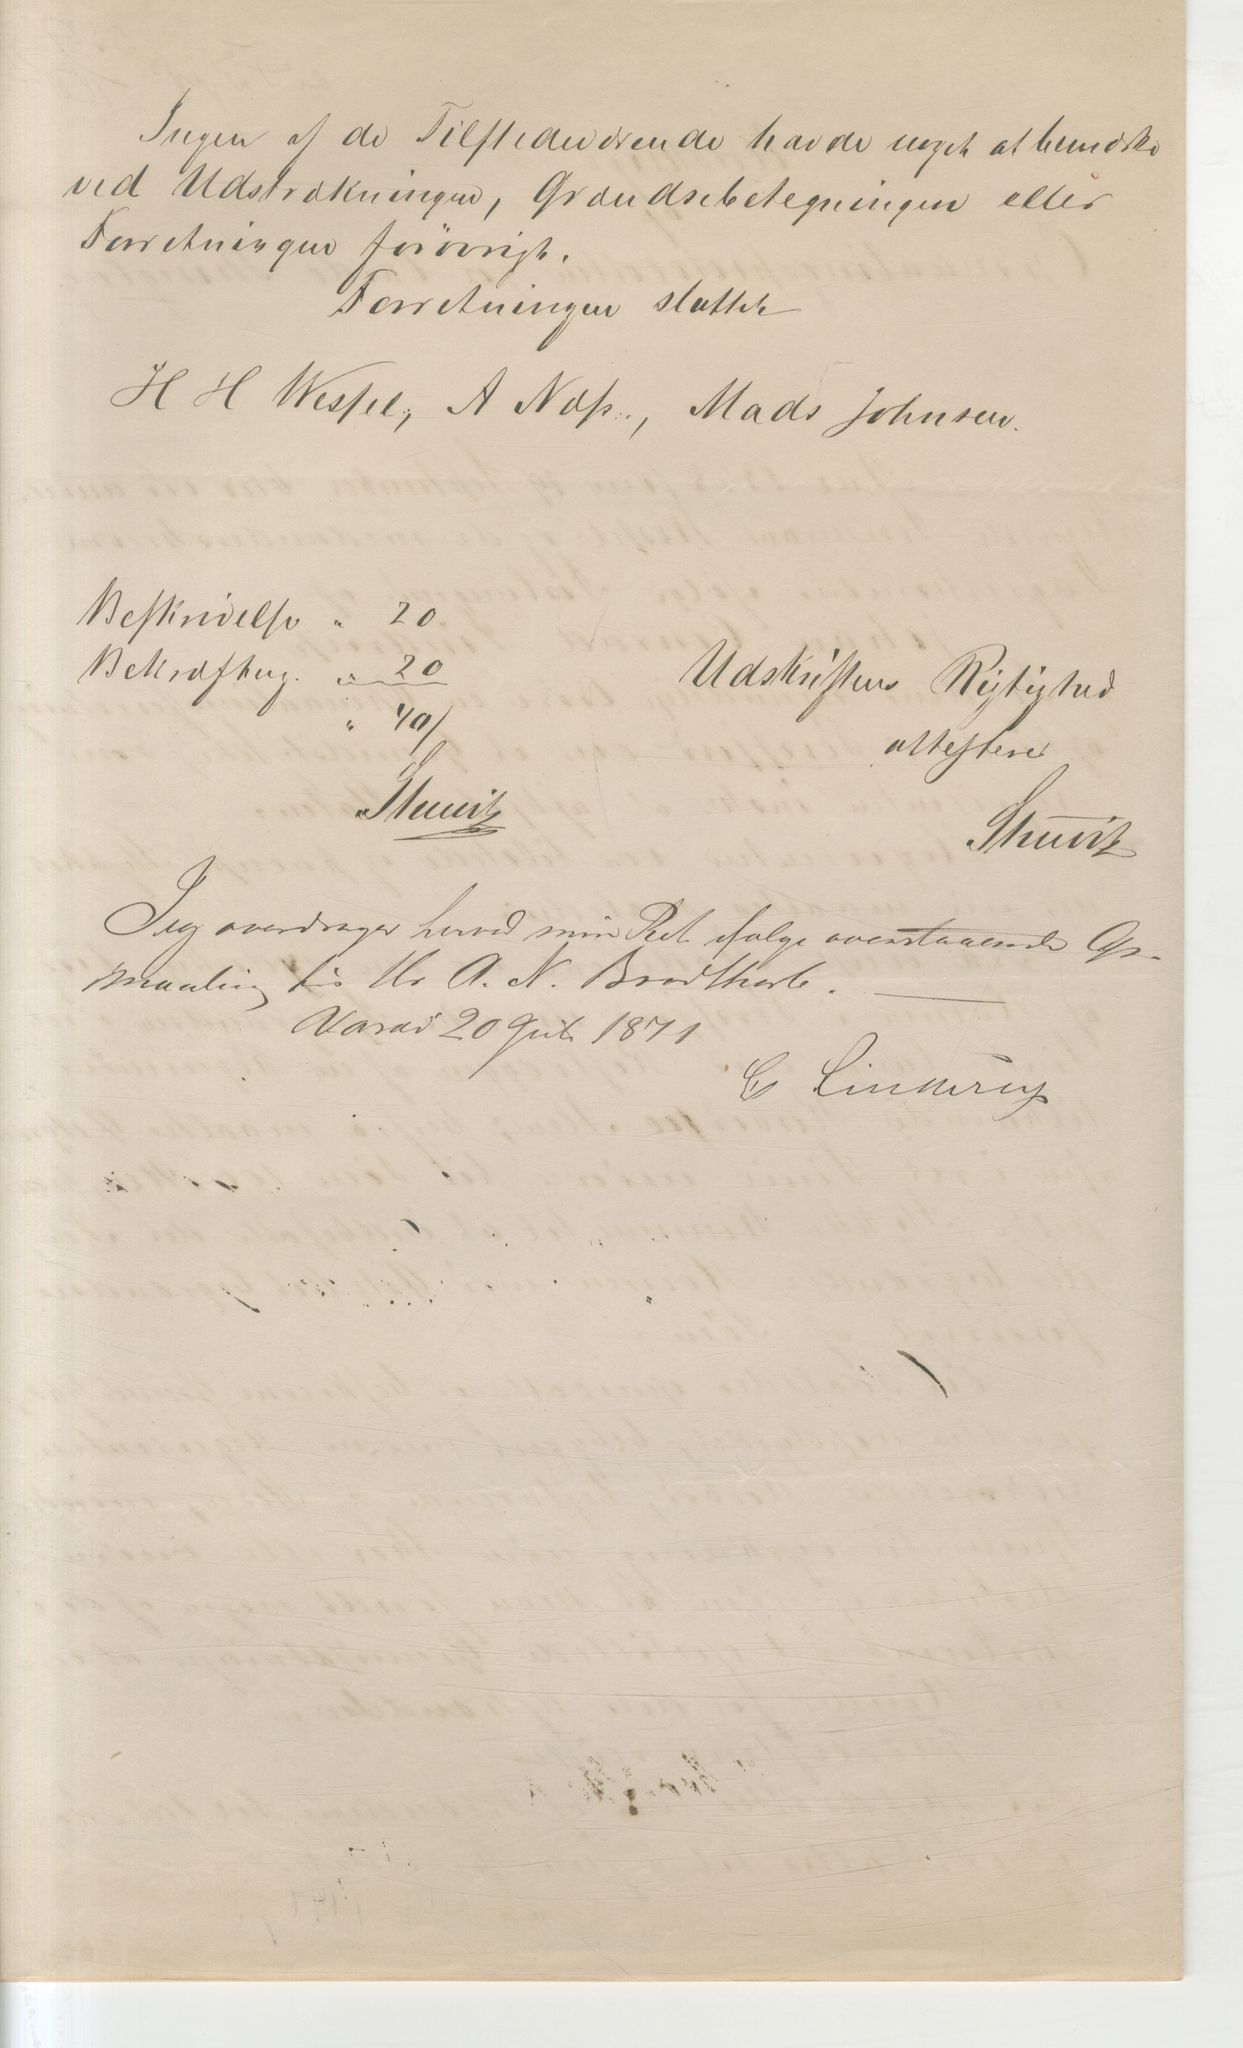 Ingen af de Tilstedeværende havde noget at bemærke
ved Udstrækningen, Grændsebetegningen eller
Forretningen forøvrigt.
Forretningen sluttet
H H Wessel, A Næss., Mads Johnsen.
Beskrivelse " 20
Bekræftng. " 20
" 40/
Udskriftens Rigtighed
attesterer
Stuwitz
Stuwitz
Jeg overdrager herved min Ret ifølge ovenstaaende Op-
maaling til Hr A. N. Brodtkorb.
Vardö 20 1871
C Lindtrup